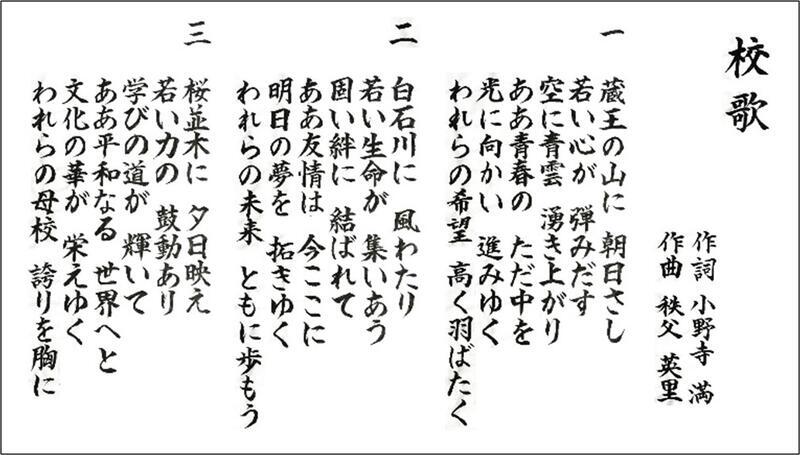 校歌
作詞 小野寺 満
作曲 秩父 英里
一
蔵王の山に 朝日さし
若い心が 弾みだす
空に青雲 湧き上がり
ああ青春の ただ中を
光に向かい 進みゆく
われらの希望 高く羽ばたく
二
白石川に 風わたり
若い生命が 集いあう
固い絆に 結ばれて
ああ友情は 今ここに
明日の夢を 拓きゆく
われらの未来 ともに歩もう
三
桜並木に 夕日映え
若い力の 鼓動あり
学びの道が 輝いて
ああ平和なる 世界へと
文化の華が 栄えゆく
われらの母校 誇りを胸に